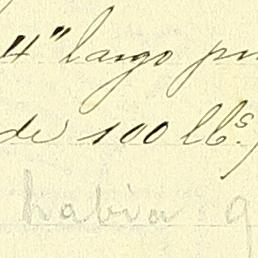 4" largo
de 100 lbs.
habia